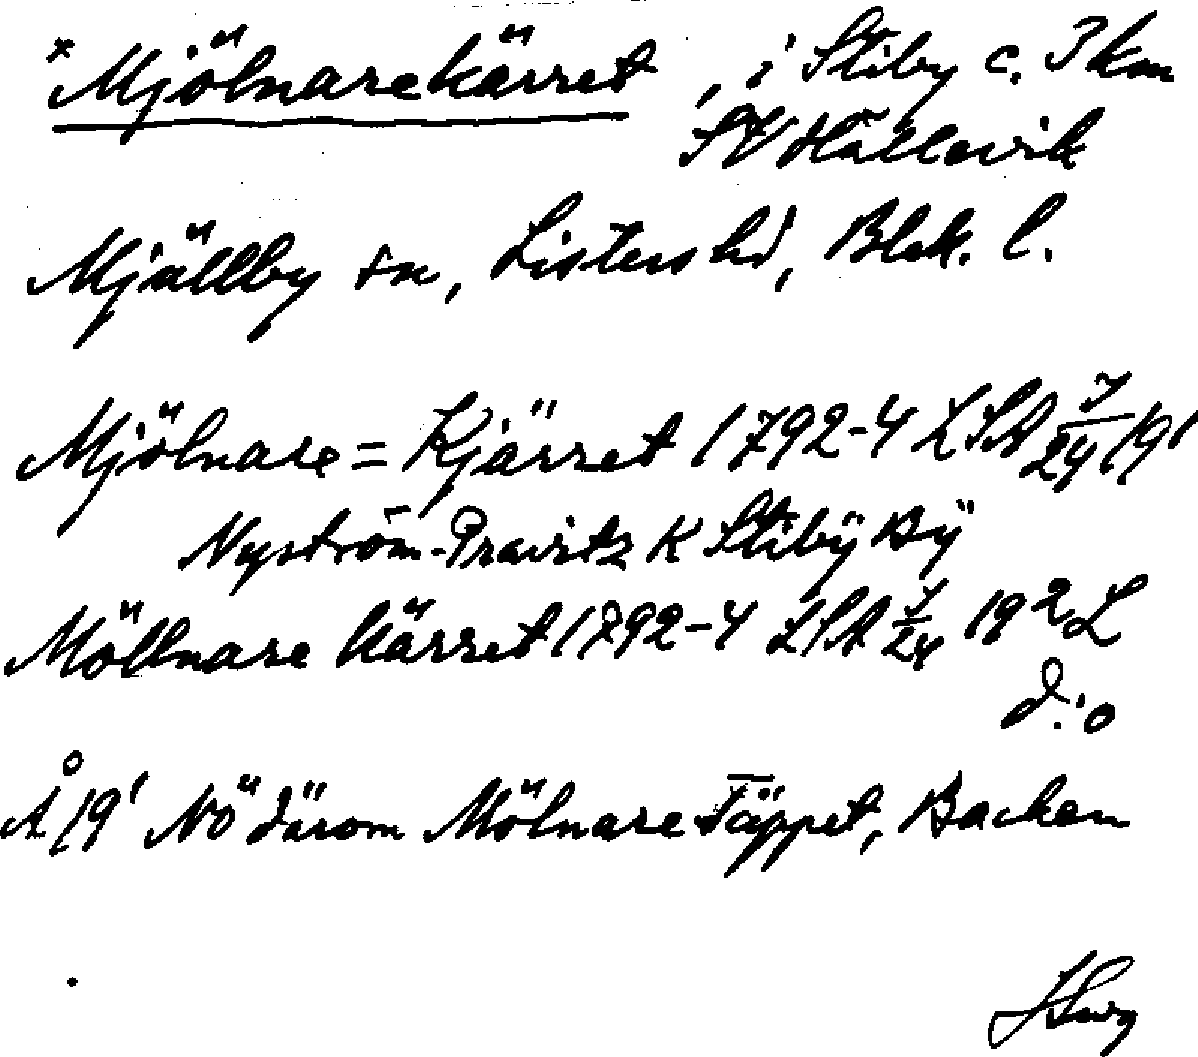 *Mjölnarekärret, i Stiby c. 3 km
SV Hällevik
Mjällby sn, Listers hd, Blek. l.
Mjölnare=Kjärret 1792-4 LSA 7/24 19¹
Nyström-Pravitz K Stibÿ Bÿ
Möllnare kärret 1792-4 LSA 7/24 19² L
d:o
Å 19¹ NÖ därom Mölnare Täppet, Backen